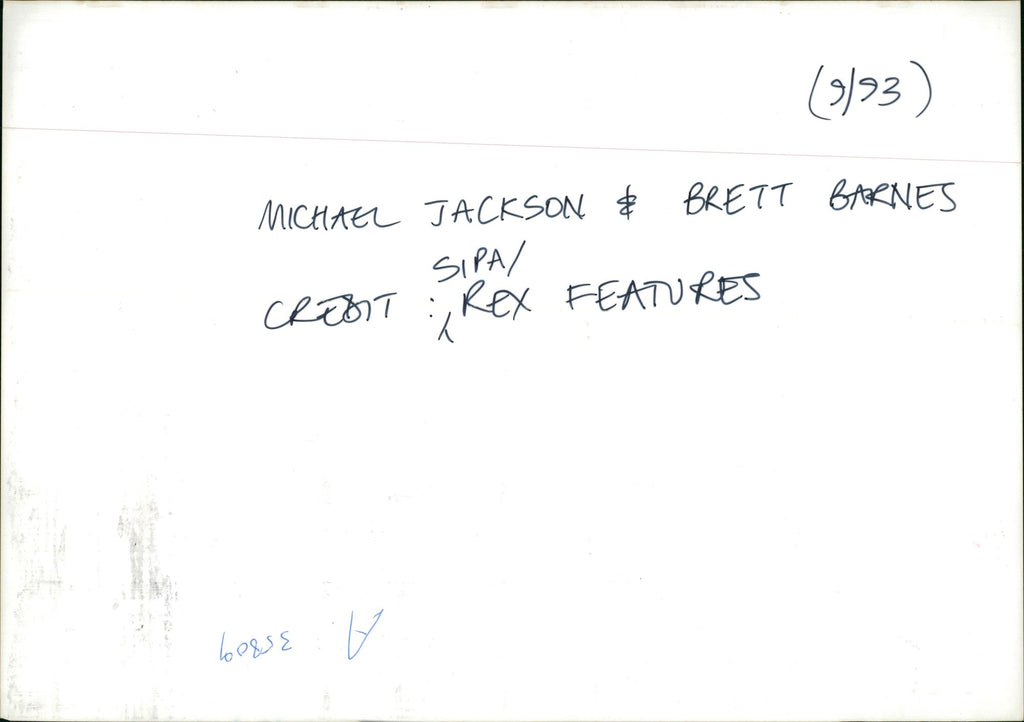 (9/93)
MICHAEL JACKSON & BRETT BARNES
SIPA/
CREDIT : REX FEATURES
A 35809